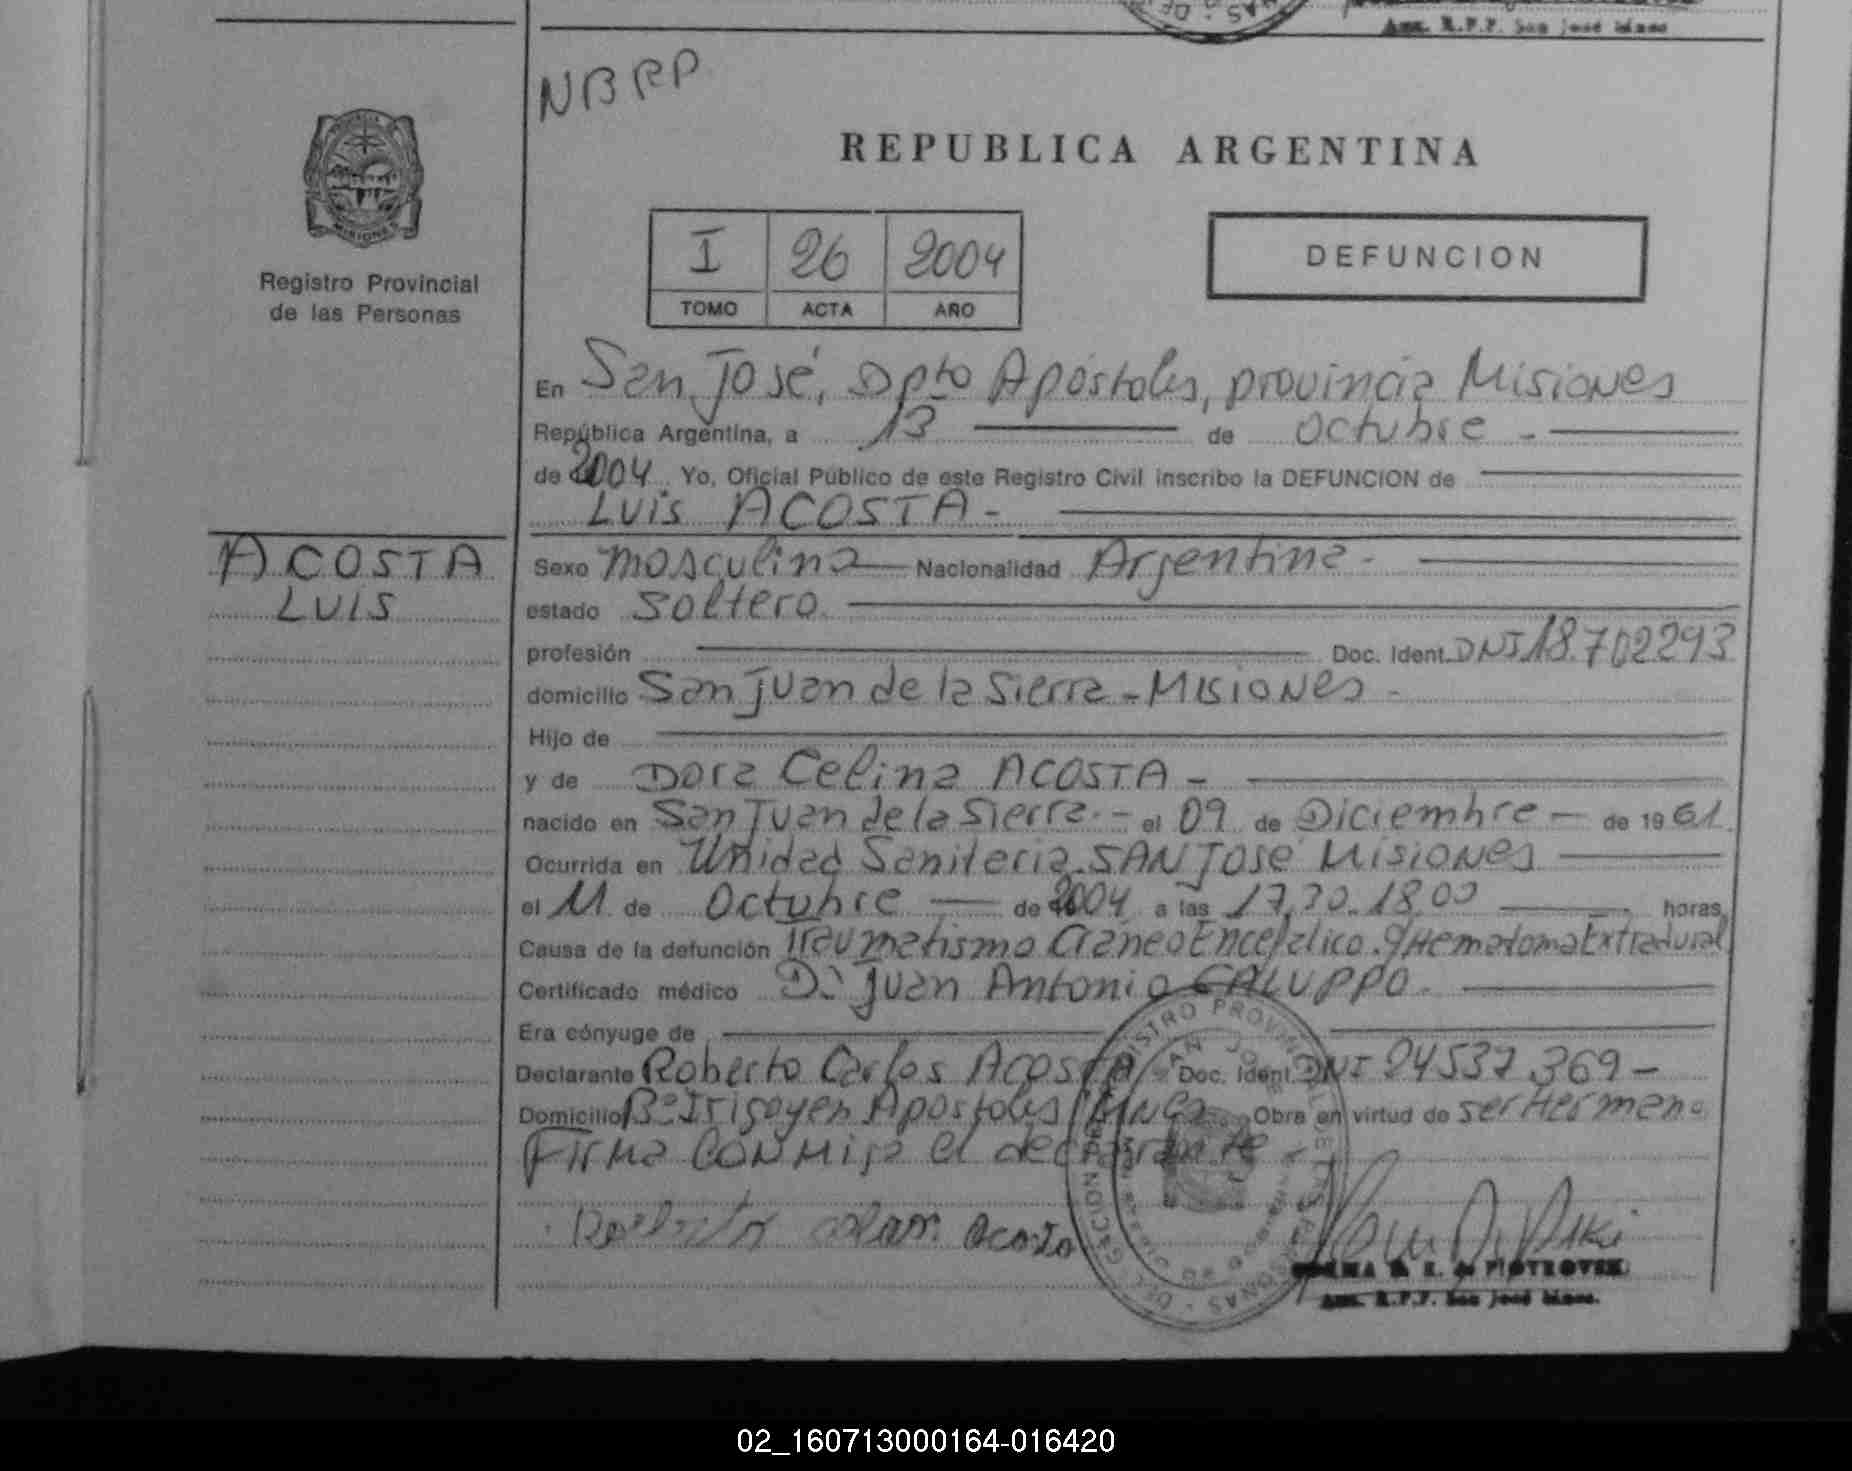 Aux. R.P.P. San José Mnes.
NBRP
REPUBLICA ARGENTINA
MISIONES
Registro Provincial
de las Personas
I 26 2004
TOMO ACTA AÑO
DEFUNCION
En San José, Dpto Apóstoles, provincia Misiones
República Argentina, a 13 de octubre -
de 2004. Yo, Oficial Público de este Registro Civil inscribo la DEFUNCION de
Luis ACOSTA -
ACOSTA
LUIS
Sexo masculino Nacionalidad Argentina -
estado soltero.
profesión Doc. Ident. DNI 18.702293
domicilio San Juan de la Sierra - Misiones -
Hijo de
y de Dora Celina ACOSTA -
nacido en San Juan de la Sierra. - el 09 de Diciembre - de 1961.
Ocurrida en Unidad Sanitaria. SAN José Misiones
el 11 de Octubre de 2004 a las 17,30. 18,00 horas,
Causa de la defunción Traumatismo Craneo Encefalico. Hematoma Extradural
Certificado médico Dr Juan Antonio GALUPPO.
Era cónyuge de
Declarante Roberto Carlos Acosta Doc. Ident. DNI 24537.369 -
Domicilio Bº Irigoyen Apostoles Mnes Obra en virtud de ser Hermano
Firma conmigo el declarante -
acosta
REGISTRO PROVINCIAL DE LAS PERSONAS - DELEGACION
NORMA B. K. de PIOTROVSKI
Aux. R.P.P. San José Mnes.
02_160713000164-016420